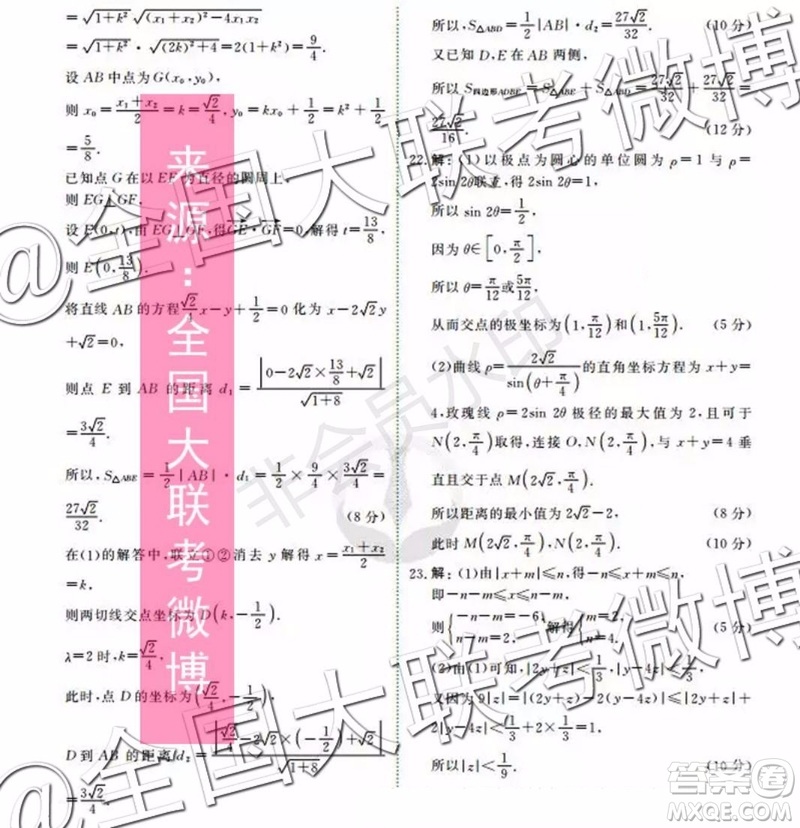 =√(1+k²) √((x₁+x₂)²-4x₁x₂)
=√(1+k²)·√((2k)²+4)=2(1+k²)=9/4.
设 AB 中点为 G(x₀,y₀),
则 x₀=(x₁+x₂)/2=k=√2/4,y₀=kx₀+1/2=k²+1/2
=5/8.
已知点 G 在以 EF 为直径的圆周上,
则 EG⊥GF,
设 E(0,t),由 EG⊥GF,得GE·GF=0,解得 t=13/8,
则 E(0,13/8).
将直线 AB 的方程 √2/4 x-y+1/2=0 化为 x-2√2 y
+√2=0,
则点 E 到 AB 的距离 d₁=|0-2√2×13/8+√2|/√(1+8)
=3√2/4.
所以,S△ABE=1/2|AB|·d₁=1/2×9/4×3√2/4=
27√2/32. (8分)
在(1)的解答中,联立①②消去 y 解得 x=(x₁+x₂)/2
=k,
则两切线交点坐标为 D(k,-1/2).
λ=2时,k=√2/4,
此时,点 D 的坐标为(√2/4,-1/2),
D 到 AB 的距离 d₂=|√2/4-2√2×(-1/2)+√2|/√(1+8)=
3√2/4.
所以,S△ABD=1/2|AB|·d₂=27√2/32. (10分)
又已知 D,E 在 AB 两侧,
所以 S四边形ADBE=S△ABE+S△ABD=27√2/32+27√2/32=
27√2/16. (12分)
22.解:(1)以极点为圆心的单位圆为 ρ=1 与 ρ=
2sin 2θ联立,得 2sin 2θ=1,
所以 sin 2θ=1/2,
因为 θ∈[0,π/2],
所以 θ=π/12或5π/12,
从而交点的极坐标为(1,π/12)和(1,5π/12). (5分)
(2)曲线 ρ=2√2/sin(θ+π/4)的直角坐标方程为 x+y=
4,玫瑰线 ρ=2sin 2θ 极径的最大值为 2,且可于
N(2,π/4)取得,连接 O,N(2,π/4),与 x+y=4 垂
直且交于点 M(2√2,π/4).
所以距离的最小值为 2√2-2, (8分)
此时 M(2√2,π/4),N(2,π/4). (10分)
23.解:(1)由|x+m|≤n,得-n≤x+m≤n,
即-n-m≤x≤n-m,
则{-n-m=-6, n-m=2, 解得{ n=4. (5分)
(2)由(1)可知,|2y+z|<1/3,|y-4z|<1/3,
又因为 9|z|=|(2y+z)-2(y-4z)|≤|2y+z|+
2|y-4z|<1/3+2×1/3=1,
所以|z|<1/9. (10分)
来源:全国大联考微博
@全国大联考微博
@全国大联考微博
非会员水印
答案圈
MXQE.COM